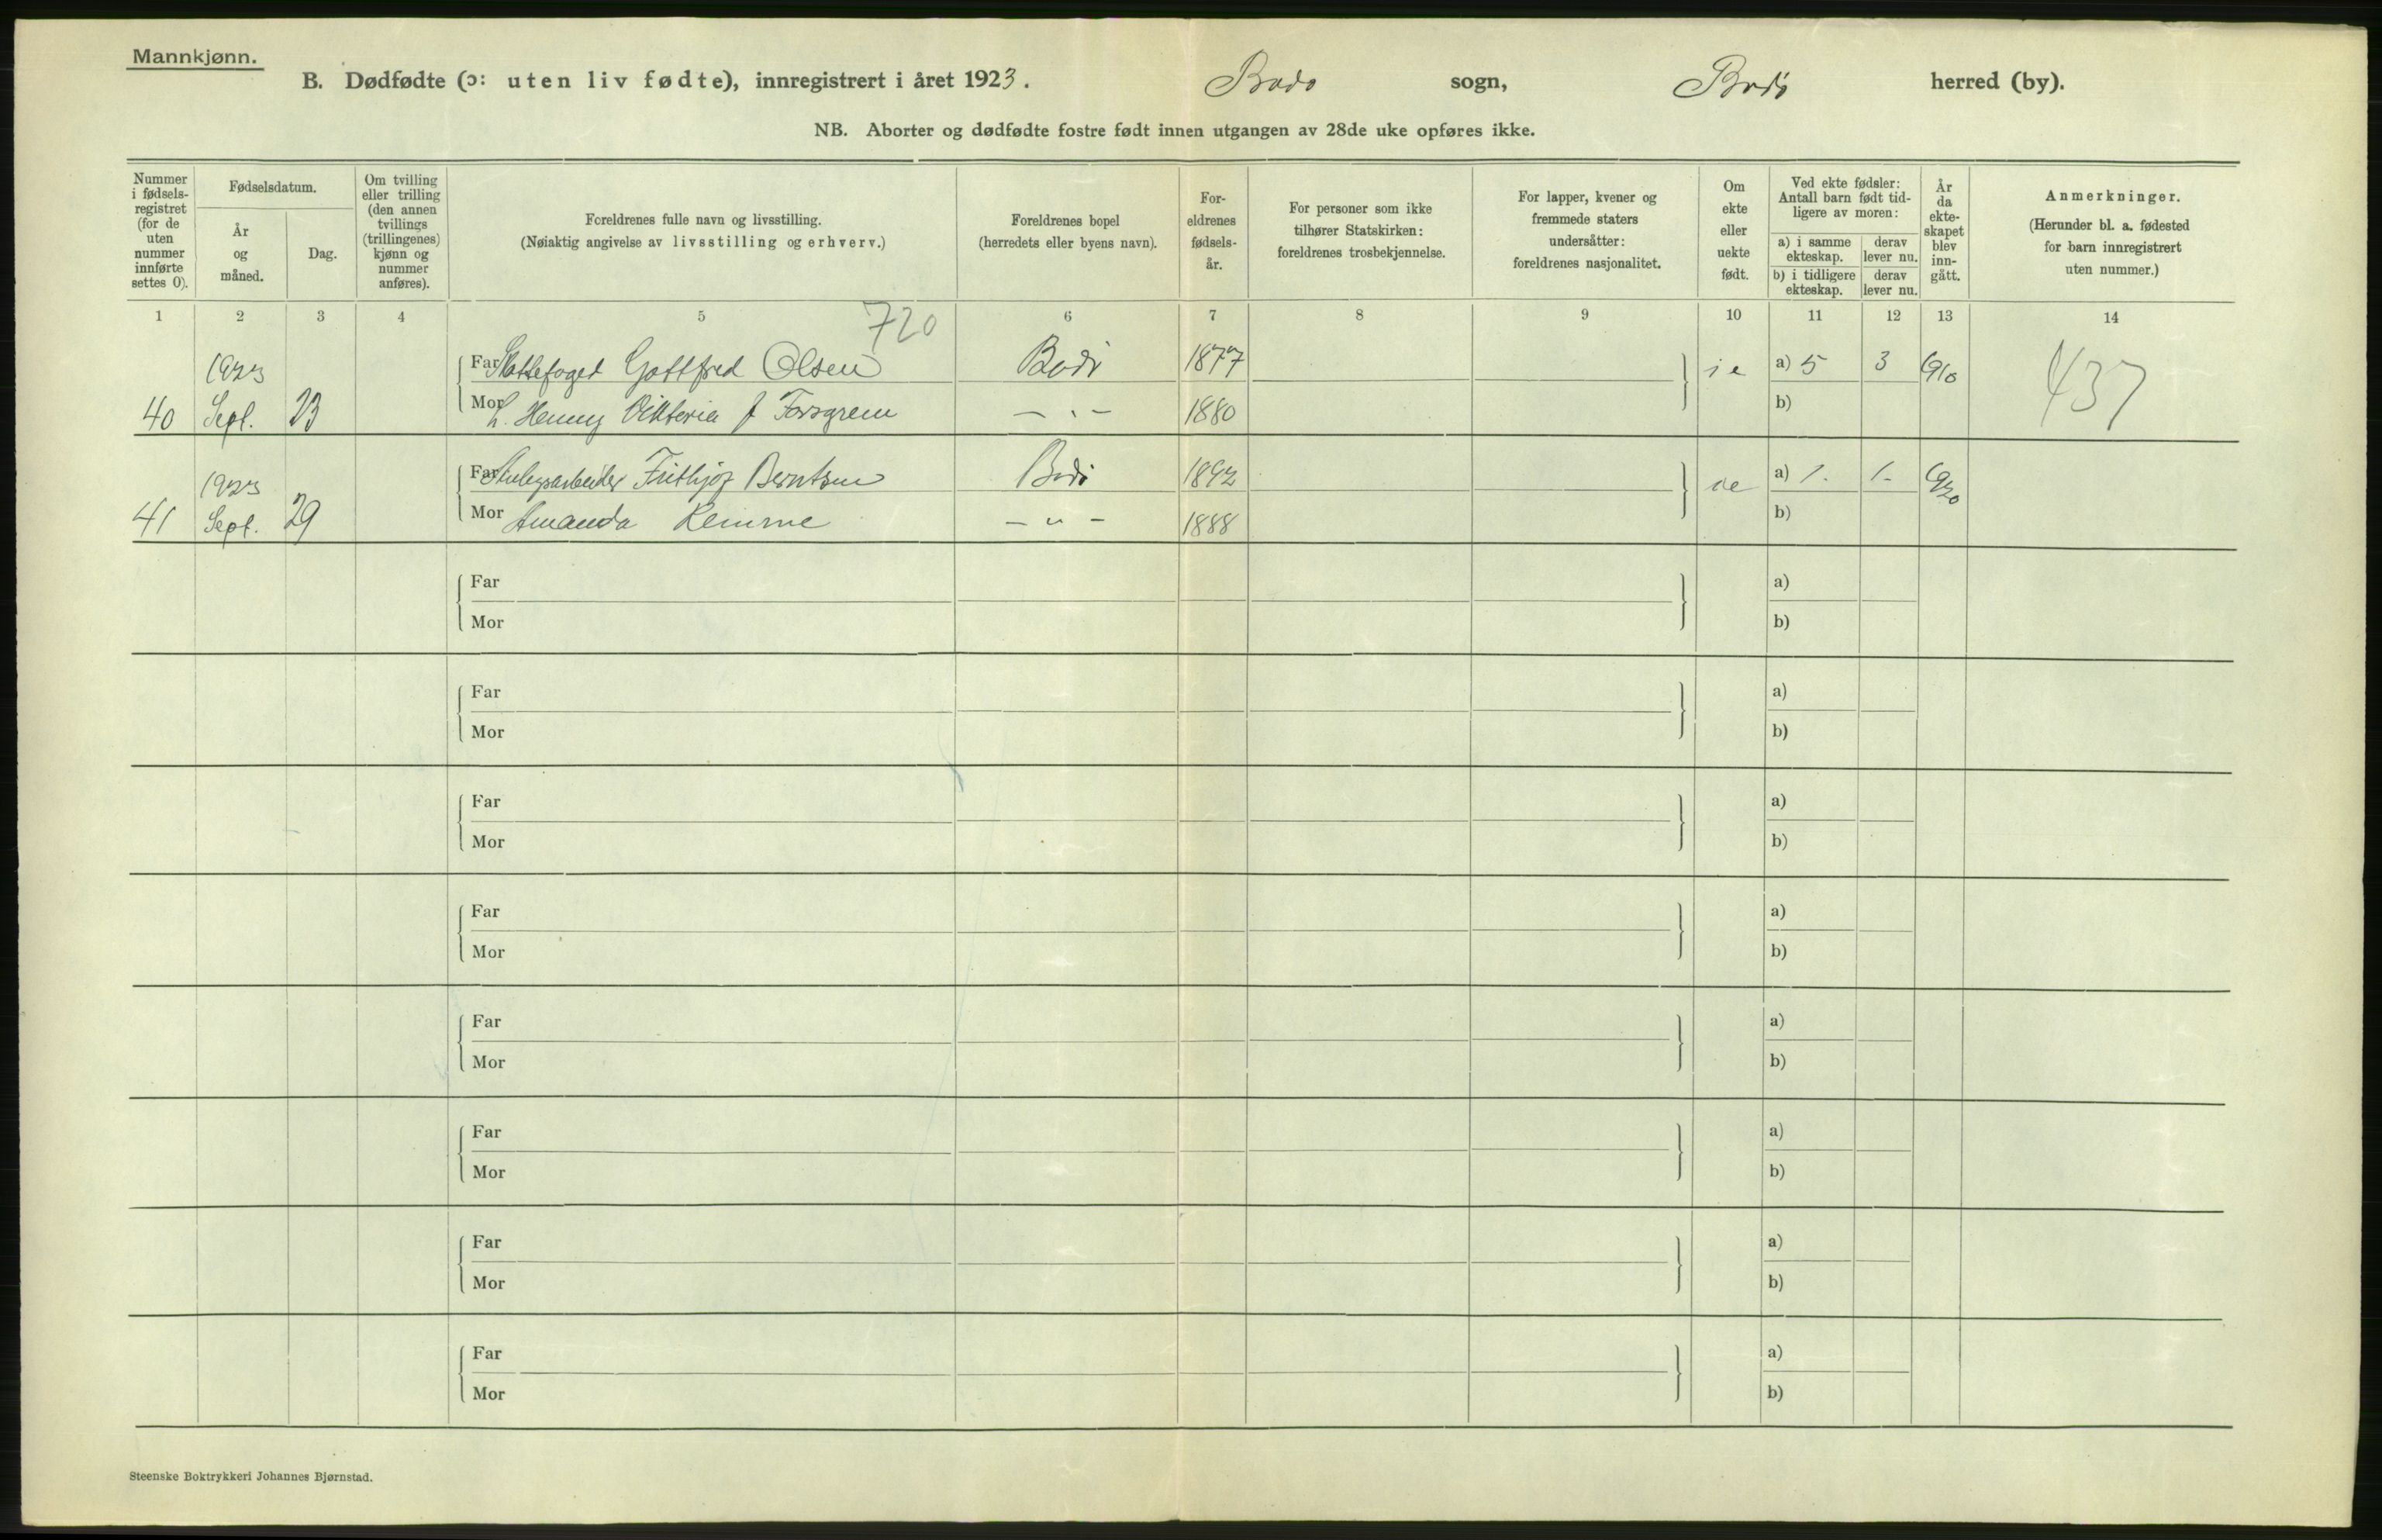 Mannkjønn.
B. Dødfødte (ɔ: uten liv fødte), innregistrert i året 1923. Bodø sogn, Bodø herred (by).
NB. Aborter og dødfødte fostre født innen utgangen av 28de uke opføres ikke.
Nummer i fødsels-registret (for de uten nummer innførte settes 0).
Fødselsdatum.
År og måned.
Dag.
Om tvilling eller trilling (den annen tvillings (trillingenes) kjønn og nummer anføres).
Foreldrenes fulle navn og livsstilling.
(Nøiaktig angivelse av livsstilling og erhverv.)
Foreldrenes bopel
(herredets eller byens navn).
For-eldrenes fødsels-år.
For personer som ikke tilhører Statskirken: foreldrenes trosbekjennelse.
For lapper, kvener og fremmede staters undersåtter: foreldrenes nasjonalitet.
Om ekte eller uekte født.
Ved ekte fødsler: Antall barn født tid-ligere av moren:
a) i samme ekteskap.
derav lever nu.
b) i tidligere ekteskap.
derav lever nu.
År da ekte-skapet blev inn-gått.
Anmerkninger.
(Herunder bl. a. fødested for barn innregistrert uten nummer.)
1 2 3 4 5 6 7 8 9 10 11 12 13 14
720
1923 Far Skattefoged Gottfred Olsen Bodø 1877 ie a) 5 3 1910 437
40 Sept. 23 Mor Henny Viktoria f Forsgren — " — 1880 b)
1923 Far Anlegsarbeider Frithjof Berntsen Bodø 1892 ie a) 1. 1. 1920
41 Sept. 29 Mor Amanda — " — 1888 b)
Far a)
Mor b)
Far a)
Mor b)
Far a)
Mor b)
Far a)
Mor b)
Far a)
Mor b)
Far a)
Mor b)
Far a)
Mor b)
Far a)
Mor b)
Steenske Boktrykkeri Johannes Bjørnstad.